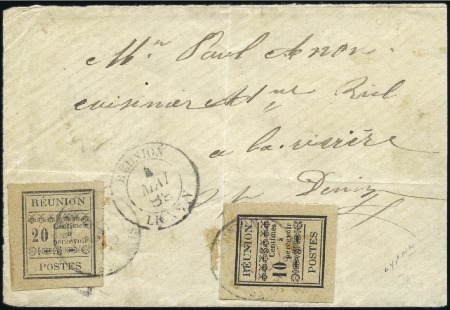 Mr Paul Anon
cuisinier
a la rivière
St Denis
RÉUNION
MAI
RÉUNION
20 Centimes
à
percevoir
POSTES
RÉUNION
10 Centimes
à
percevoir
POSTES